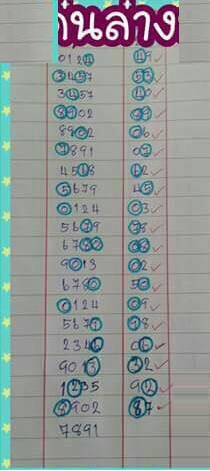 ต๋นล่าง
0124 49 ✓
3457 55 ✓
3457 40 ✓
8902 09 ✓
8902 06 ✓
7891 07 ✓
4568 62 ✓
5679 45 ✓
0124 03 ✓
5679 78 ✓
6780 08 ✓
9013 62 ✓
6780 50 ✓
0124 09 ✓
5671 18 ✓
2346 06 ✓
9013 32 ✓
1235 92 ✓
8902 87 ✓
7891